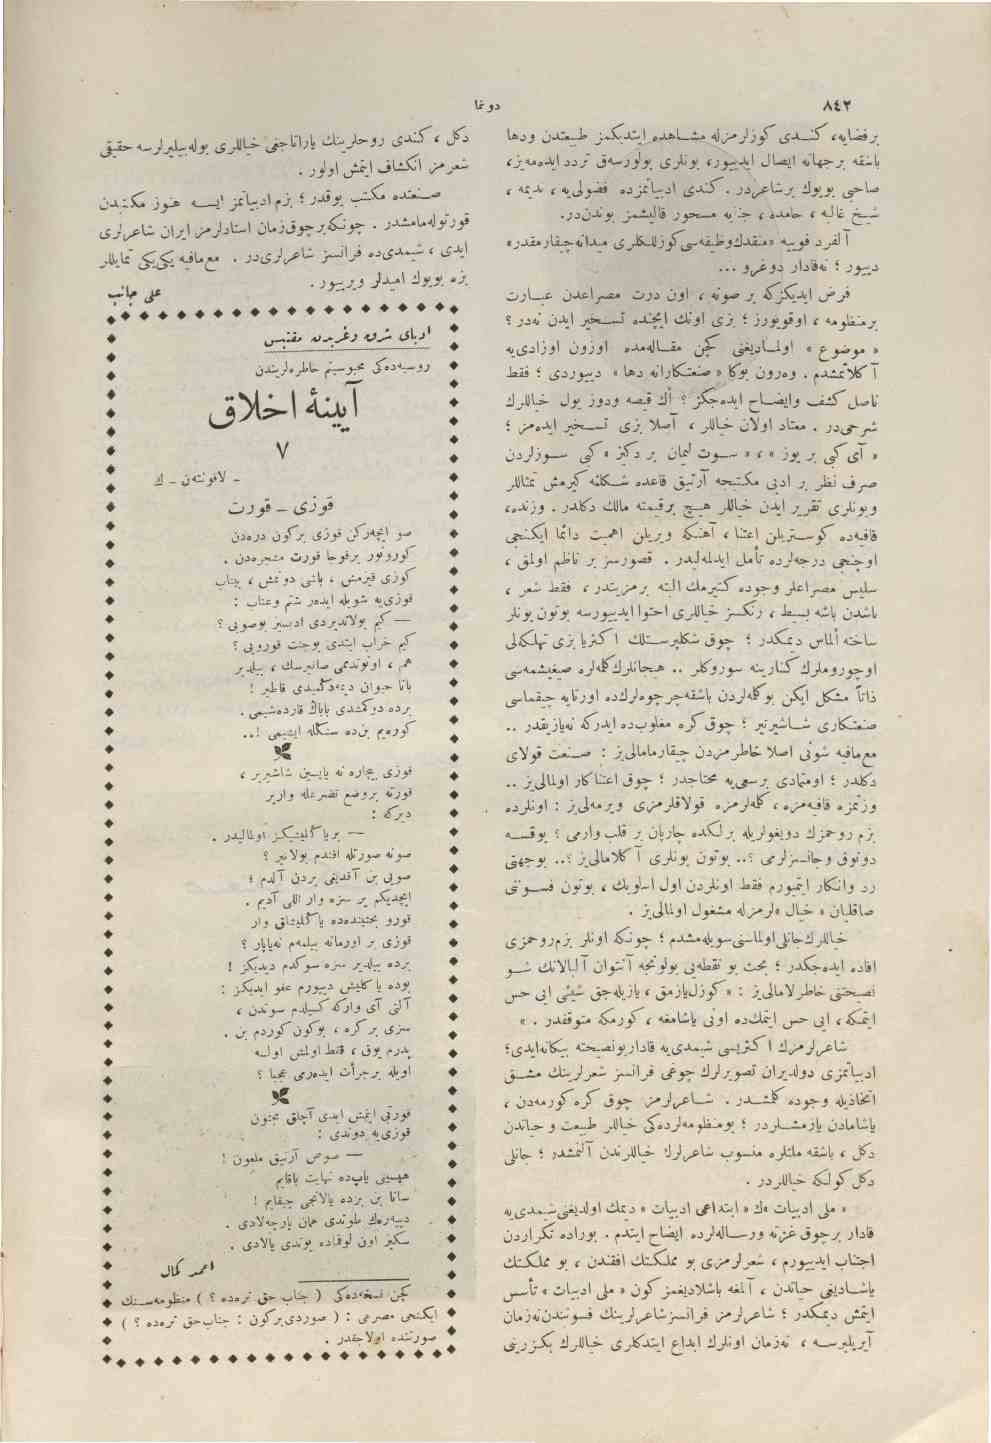 ٨٤٢
دونما
برفضایه، کندی کوزلرمزله مشاهده ایتدیکمز طبیعتدن ودها
باشقه برجهانه ایصال ایدییور، بونلری بولورسەق تردد ایدەمەیز،
صاحبی بویوك برشاعردر. کندی ادبیاتمزده فضولی‌یه، ندیمه،
شیخ غالبه، حامده، جذبه مسحور قالیشمز بوندن‌در.
آلفرد فوییه «منقدك وظیفه‌سی کوزللکلری میدانه‌چیقارمقدر»
دییور؛ نەقادار دوغرو ...
فرض ایدیکزکه بر صونه، اون درت مصراعدن عبارت
برمنظومه، اوقویورز؛ بزی اونك ایچنده تسخیر ایدن نەدر؟
«موضوع» اولمادیغنی کچن مقاله‌مده اوزون اوزادی‌یه
آکلاتمشدم. وەرون بوکا «صنعتکارانه دها» دییوردی؛ فقط
ناصل کشف وایضاح ایده‌جکز؟ اك قیصه ودوز یول خیاللرك
شرحی‌در. معتاد اولان خیاللر، آصلا بزی تسخیر ایده‌مز؛
«آی کبی بر یوز»، «سوت لیمان بر دکیز» کبی سوزلردن
صرف نظر بر ادبی مکتبجه آرتیق قاعده شکلنه کیرمش تمثاللر
وبونلری تقریر ایدن خیاللر هیچ برقیمته مالك دکلدر. وزنده،
قافیه‌ده کوستریلن اعتنا، آهنکه ویریلن اهمیت دائما ایکنجی
اوچنجی درجه‌لرده تأمل ایدلمەلیدر. قصورسز بر ناظم اولمق،
سلیس مصراعلر وجوده کتیرمك البته برمزیتدر، فقط شعر،
باشدن باشه بسیط، رنکسز خیاللری احتوا ایدییورسه بوتون بونلر
ساخته ألماس دیمکدر؛ چوق شکلپرستلك اکثریا بزی تهلکه‌لی
اوچوروملرك کنارینه سوروکلر .. هیجانلرك کله‌لره صیغیشمه‌سی
ذاتاً مشکل ایکن بوکله‌لردن باشقه‌چرچوه‌لرك‌ده اورتایه چیقماسی
صنعتکاری شاشیرتیر؛ چوق کره مغلوب‌ده ایدرکه نه‌یازیقدر ..
مع‌مافیه شونی اصلا خاطرمزدن چیقارمامالی‌یز: صنعت قولای
دکلدر؛ اومتمادی برسعی‌یه محتاجدر؛ چوق اعتناکار اولمالی‌یز ..
وزنمزه قافیه‌مزه، کله‌لرمزه قولاقلرمزی ویرمه‌لی‌یز: اونلرده
بزم روحمزك دویغولریله برلکده چارپان بر قلب وارمی؟ یوقسه
دونوق وجانسزلرمی؟.. بوتون بونلری آکلامالی‌یز؟.. بوجهتی
رد وانکار ایتمیورم فقط اونلردن اول اسلوبك، بوتون فسونی
صاقلیان «خیال»لرمزله مشغول اولمالی‌یز.
خیاللرك‌جانلی‌اولماسنی‌سویله‌مشدم؛ چونکه اونلر بزم‌روحمزی
افاده ایده‌جکدر؛ بحث بو نقطه‌یی بولونجه آنتوان آلبالانك شو
نصیحتنی خاطرلامالی‌یز: «کوزل‌یازمق، یازیله‌جق شیئی ایی حس
ایتمکه، ایی حس ایتمك‌ده اونی یاشامغه، کورمکه متوقفدر.»
شاعرلرمزك اکثریسی شیمدی‌یه قادار بونصیحته بیکانه‌ایدی؛
ادبیاتمزی دولدیران تصویرلرك چوغی فرانسز شعرلرینك مشق
اتخاذیله وجوده کلمشدر. شاعرلرمز چوق کره کورمه‌دن،
یاشامادن یازمشلردر؛ بومنظومه‌لرده‌کی خیاللر طبیعت و حیاتدن
دکل، باشقه ملتلره منسوب شاعرلرك خیاللرندن آلنمشدر؛ جانلی
دکل کولکه خیاللردر.
«ملی ادبیات» ك «ابتداعی ادبیات» دیمك اولدیغنی‌شیمدی‌یه
قادار برچوق غزته ورساله‌لرده ایضاح ایتدم. بوراده تکراردن
اجتناب ایدییورم، شعرلرمزی بو مملکتك افقندن، بو مملکتك
یاشادیغی حیاتدن، آلمغه باشلادیغمز کون «ملی ادبیات» تأسس
ایتمش دیمکدر؛ شاعرلرمز فرانسزشاعرلرینك فسونندن‌نه‌زمان
آیریلیرسه، نه‌زمان اونلرك ابداع ایتدکلری خیاللرك بکزرینی
دکل، کندی روحلرینك یاراتاجغی خیاللری بوله‌بیلیرلرسه حقیقی
شعرمز انکشاف ایتمش اولور.
صنعتده مکتب یوقدر؛ بزم ادبیاتمز ایسه هنوز مکتبدن
قورتوله‌مامشدر. چونکه‌برچوق‌زمان استادلرمز ایران شاعرلری
ایدی، شیمدی‌ده فرانسز شاعرلری‌در. مع‌مافیه یکی‌یکی تمایللر
بزه بویوك امیدلر ویرییور.
علی جانب
ادبای شرق وغربدن مقتبس
روسیه‌ده‌کی محبوسیتم خاطره‌لریندن
آیینۀ اخلاق
٧
- لافونته‌ن - ك
قوزی - قورت
صو ایچه‌رکن قوزی برکون دره‌دن
کورونور برقوجا قورت منجره‌دن.
کوزی قیزمش، باشی دونمش، بیتاب
قوزی‌یه شویله ایده‌ر شتم وعتاب:
— کیم بولاندیردی ادبسز بوصویی؟
کیم خراب ایتدی بوجنت قورویی؟
هم، اونوتدمی صانیرسك، بیلدیر
بانا حیوان دیمەدكمیدی قاطیر!
برده دوکمشدی باباڭ قارده‌شیمی.
کوره‌یم بن‌ده سنکله ایشیمی!..
قوزی بیچاره نه یاپسین شاشیریر،
قورته بروضع تضرعله واریر
دیرکه:
— بریاکلیشکز اولمالیدر.
صونه صورتله افندم بولانیر؟
صویی بن آقدیغی یردن آلدم؛
ایچدیکم یر سزه وار اللی آدیم.
قورو بحثنده‌ده یاکلیشلق وار
قوزی بر اورمانه بیلمه‌م نه‌یاپار؟
برده بیلدیر سزه سوکدم دیدیکز!
بوده یاکلیش دییورم عفو ایدیکز:
آلتی آی وارکه کسیلدم سوتدن،
سزی بر کره، بوکون کوردم بن.
پدرم یوق، فقط اولمش اولسه
اویله برجرأت ایده‌رمی عجبا؟
قورتی ایتمش ایدی آچلق مجنون
قوزی‌یه دوندی:
— صوص آرتیق ملعون!
هپسینی یاپ‌ده نهایت باقایم
سانا بن برده یالانجی چیقایم!
دییه‌رەك طوتدی همان پارچه‌لادی.
سکیز اون لوقماده یوتدی یالادی.
احمد کمال
کچن نسخه‌ده‌کی ( جناب حق نره‌ده ؟ ) منظومه‌سنك
ایکنجی مصرعی: ( صوردی‌برکون: جناب‌حق نره‌ده ؟ )
صورتنده اولاجقدر.